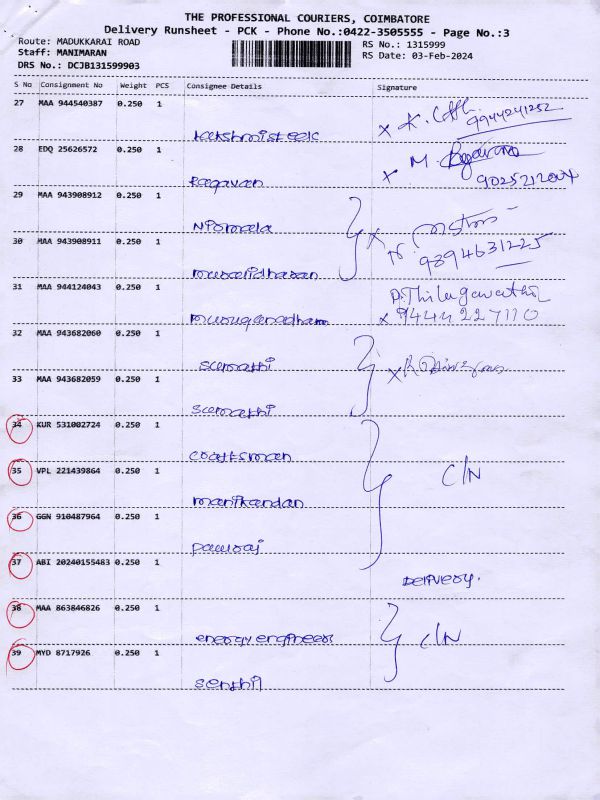 THE PROFESSIONAL COURIERS, COIMBATORE
Delivery Runsheet - PCK - Phone No.:0422-3505555 - Page No.:3
Route: MADUKKARAI ROAD
RS No.: 1315999
Staff: MANIMARAN
RS Date: 03-Feb-2024
DRS No.: DCJB131599903
S No Consignment No Weight PCS Consignee Details Signature
27 MAA 944540387 0.250 1
Lakshmisteels
x K. 9944241252
28 EDQ 25626572 0.250 1
Ragavan
x M. 9025212004
29 MAA 943908912 0.250 1
Nirmala
30 MAA 943908911 0.250 1
muralidharan
x N. 9894631225
31 MAA 944124043 0.250 1
muruganadham
P. Thilagavathi
x 9444227110
32 MAA 943682060 0.250 1
sumathi
33 MAA 943682059 0.250 1
sumathi
x R
34 KUR 531002724 0.250 1
craftsman
35 VPL 221439864 0.250 1
manikandan
C/N
36 GGN 910487964 0.250 1
pawraj
37 ABI 20240155483 0.250 1
Delivery.
38 MAA 863846826 0.250 1
energy engineers
C/N
39 MYD 8717926 0.250 1
senthil